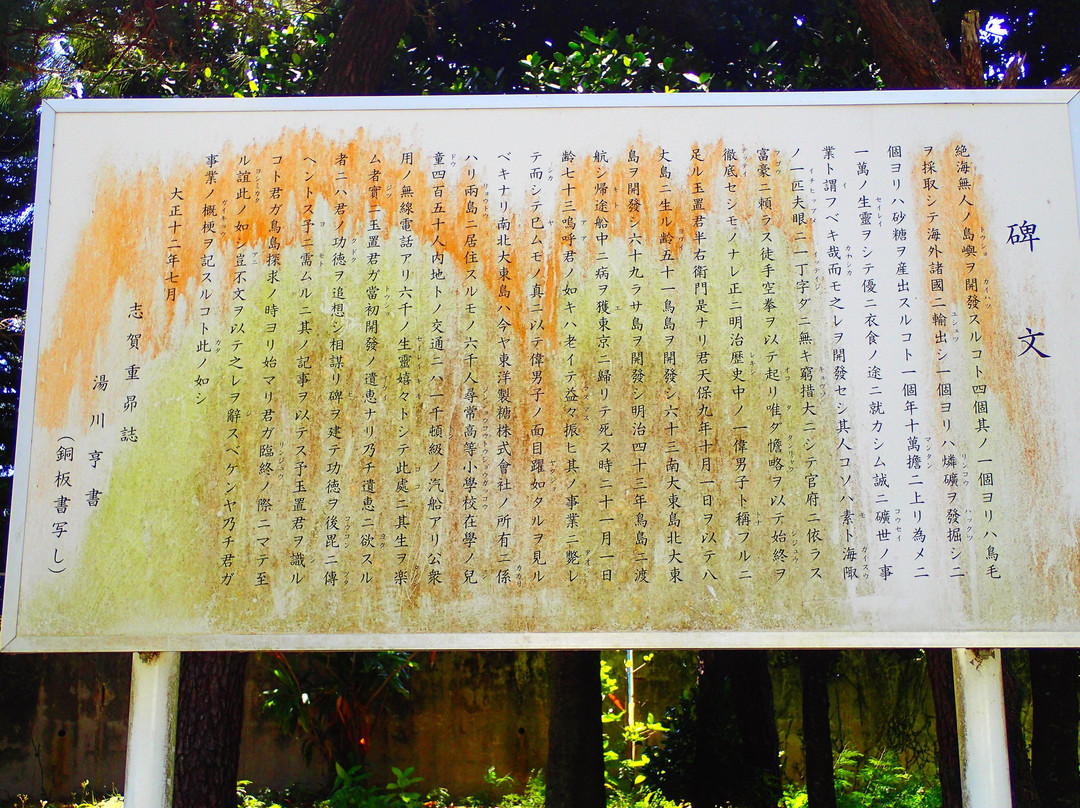 碑文
絶海無人ノ島嶼ヲ開發スルコト四個其ノ一個ヨリハ鳥毛
ヲ採取シテ海外諸國ニ輸出シ一個ヨリハ燐礦ヲ發掘シ二
個ヨリハ砂糖ヲ産出スルコト一個年十萬擔ニ上リ為メニ
一萬ノ生靈ヲシテ優ニ衣食ノ途ニ就カシム誠ニ礦世ノ事
業ト謂フベキ哉而モ之レヲ開發セシ其人コソハ素ト海陬
ノ一匹夫眼ニ一丁字ダニ無キ窮措大ニシテ官府ニ依ラス
富豪ニ頼ラス徒手空拳ヲ以テ起リ唯ダ憺略ヲ以テ始終ヲ
徹底セシモノナレ正ニ明治歴史中ノ一偉男子ト稱フルニ
足ル玉置君半右衛門是ナリ君天保九年十月一日ヲ以テ八
丈島ニ生ル齢五十一鳥島ヲ開發シ六十三南大東島北大東
島ヲ開發シ六十九ラサ島ヲ開發シ明治四十三年鳥島ニ渡
航シ帰途船中ニ病ヲ獲東京ニ歸リテ死ス時ニ十一月一日
齢七十三嗚呼君ノ如キハ老イテ益々振ヒ其ノ事業ニ斃レ
テ而シテ已ムモノ真ニ以テ偉男子ノ面目躍如タルヲ見ル
ベキナリ南北大東島ハ今ヤ東洋製糖株式會社ノ所有ニ係
ハリ兩島ニ居住スルモノ六千人尋常高等小學校在學ノ兒
童四百五十人内地トノ交通ニハ一千頓級ノ汽船アリ公衆
用ノ無線電話アリ六千ノ生靈嬉々トシテ此處ニ其生ヲ楽
ム者實ニ玉置君ガ當初開發ノ遺恵ナリ乃チ遺恵ニ欲スル
者ニハ君ノ功徳ヲ追想シ相謀リ碑ヲ建テ功徳ヲ後毘ニ傳
ヘントス予ニ需ムルニ其ノ記事ヲ以テス予玉置君ヲ識ル
コト君ガ鳥島探求ノ時ヨリ始マリ君ガ臨終ノ際ニマテ至
ル誼此ノ如シ豈不文ヲ以テ之レヲ辭スベケンヤ乃チ君ガ
事業ノ概梗ヲ記スルコト此ノ如シ
大正十二年七月
志賀重昴誌
湯川亨書
(銅板書写し)